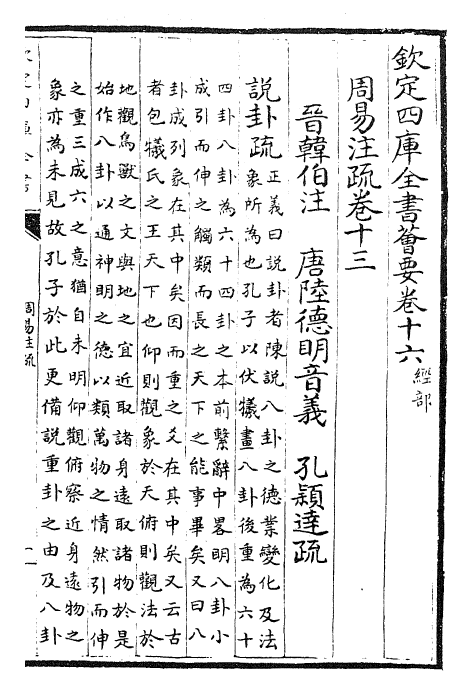 欽定四庫全書薈要卷十六 經部
周易注疏卷十三
晉韓伯注 唐陸德明音義 孔穎達疏
說卦疏正義曰說卦者陳說八卦之德業變化及法
象所為也孔子以伏犧畫八卦後重為六十
四卦八卦為六十四卦之本前繫辭中畧明八卦小
成引而伸之觸類而長之天下之能事畢矣又曰八
卦成列象在其中矣因而重之爻在其中矣又云古
者包犧氏之王天下也仰則觀象於天俯則觀法於
地觀鳥獸之文與地之宜近取諸身遠取諸物於是
始作八卦以通神明之德以類萬物之情然引而伸
之重三成六之意猶自未明仰觀俯察近身遠物之
象亦為未見故孔子於此更備說重卦之由及八卦
周易注疏
一